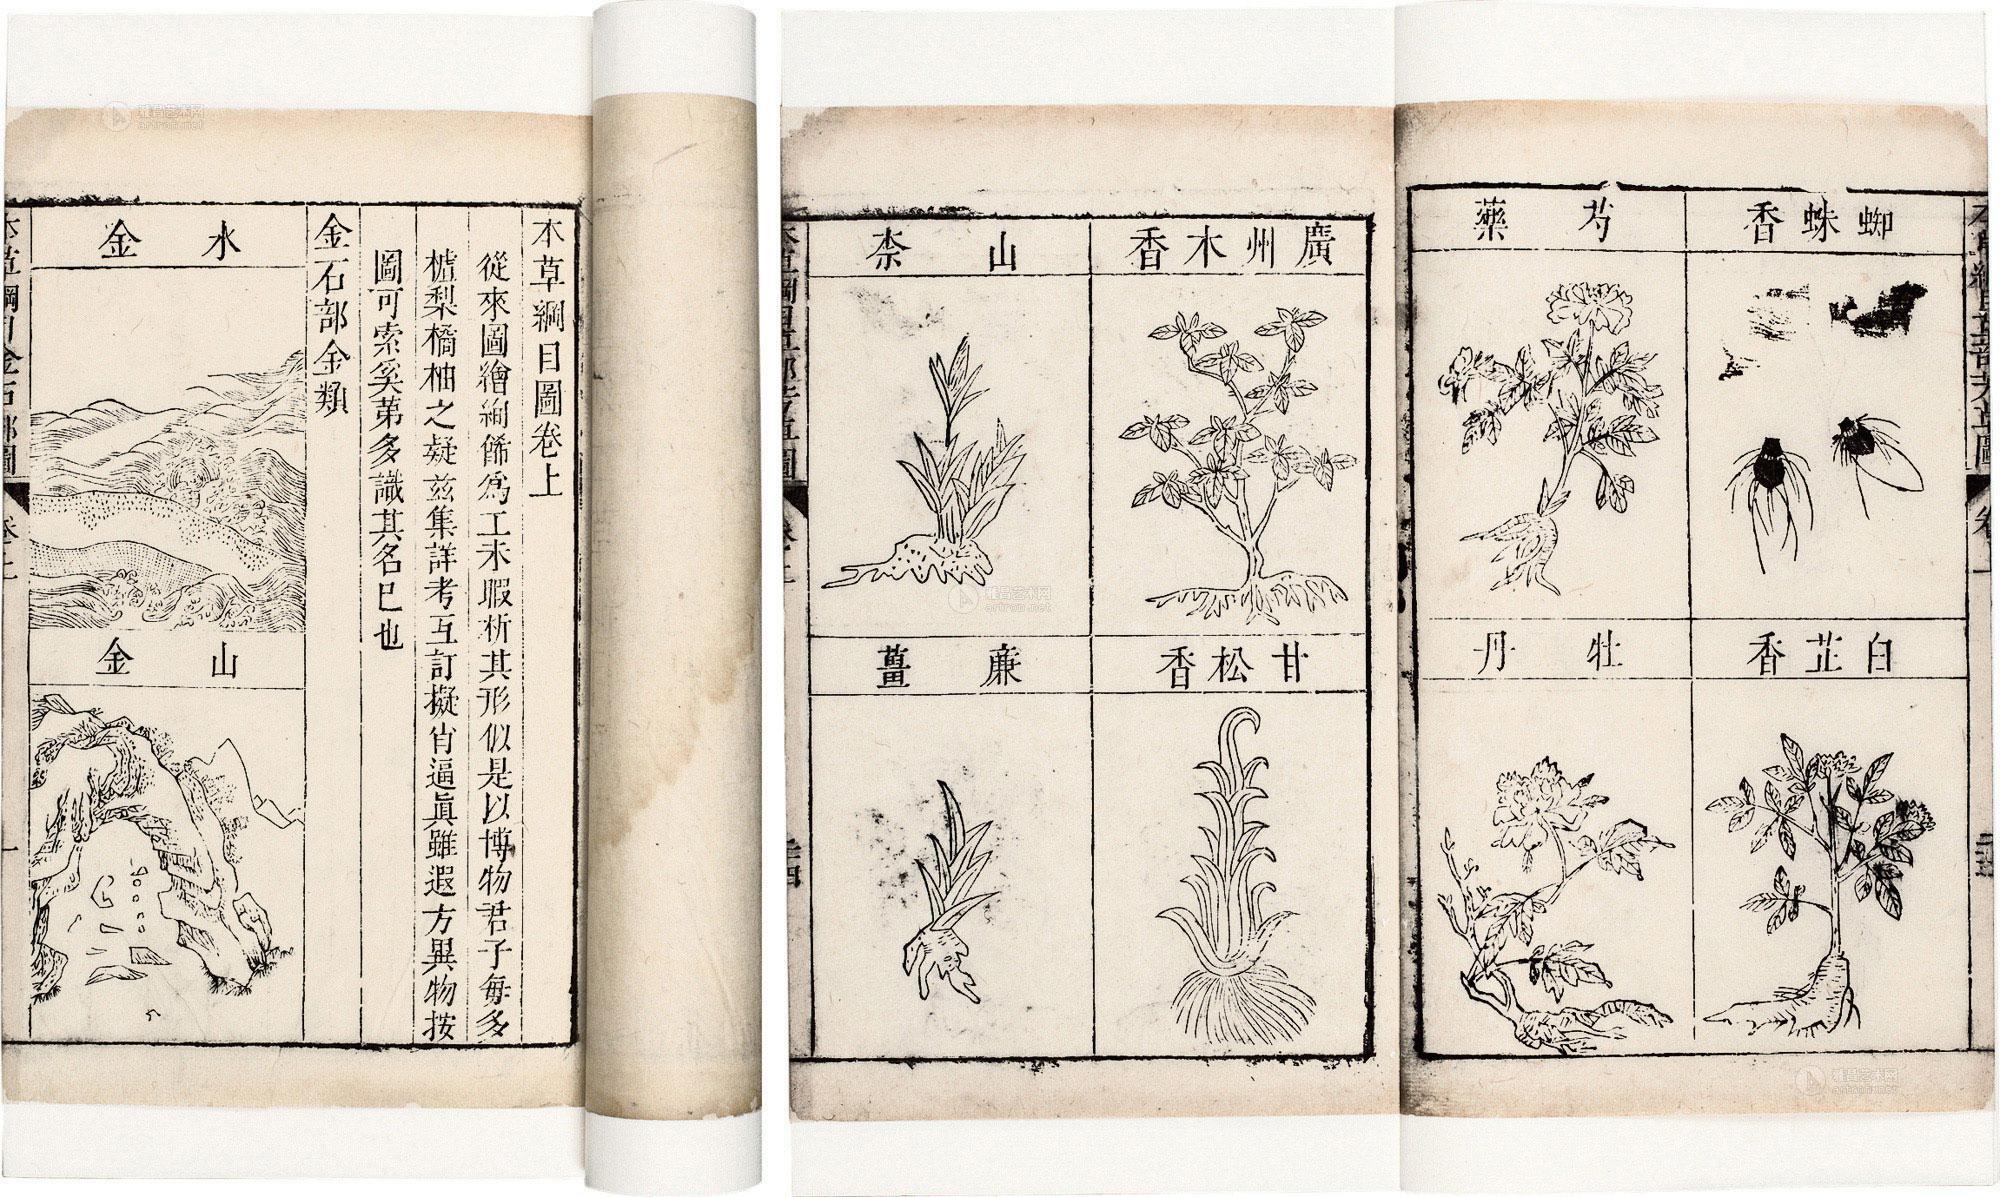 本草綱目圖卷上
從來圖繪絢餙爲工未暇析其形似是以博物君子每多
樝梨橘柚之疑兹集詳考互訂擬肖逼眞雖遐方異物按
圖可索奚第多識其名已也
金石部金類
水金
山金
本草綱目金石部圖
卷上
一
蜘蛛香
芍藥
白芷香
牡丹
廣州木香
山柰
甘松香
廉薑
卷上
雅昌艺术网
artron.net
雅昌艺术网
artron.net
雅昌艺术网
artron.net